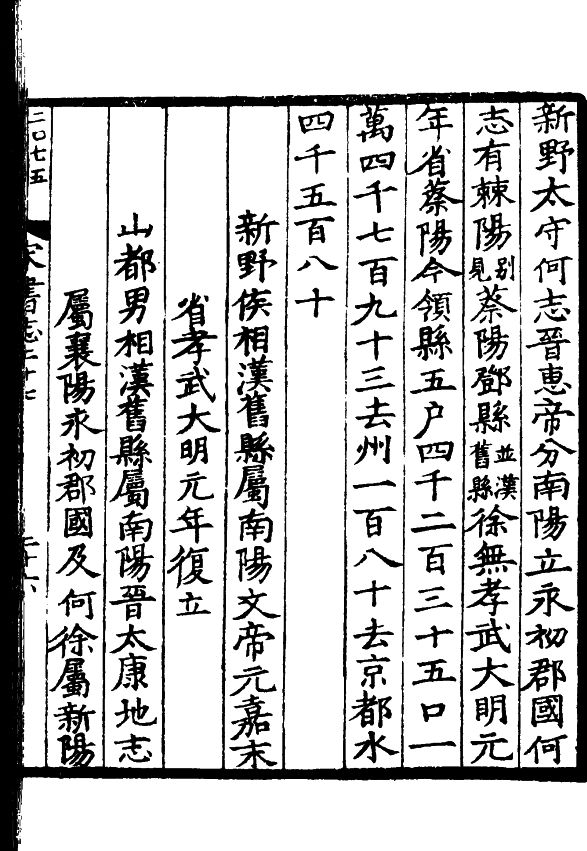 新野太守何志晉惠帝分南陽立永初郡國何
志有棘陽别見蔡陽鄧縣並漢舊縣徐無孝武大明元
年省蔡陽今領縣五户四千二百三十五口一
萬四千七百九十三去州一百八十去京都水
四千五百八十
新野侯相漢舊縣屬南陽文帝元嘉末
省孝武大明元年復立
山都男相漢舊縣屬南陽晉太康地志
屬襄陽永初郡國及何徐屬新陽
二〇七五
宋書志二十七
二十六